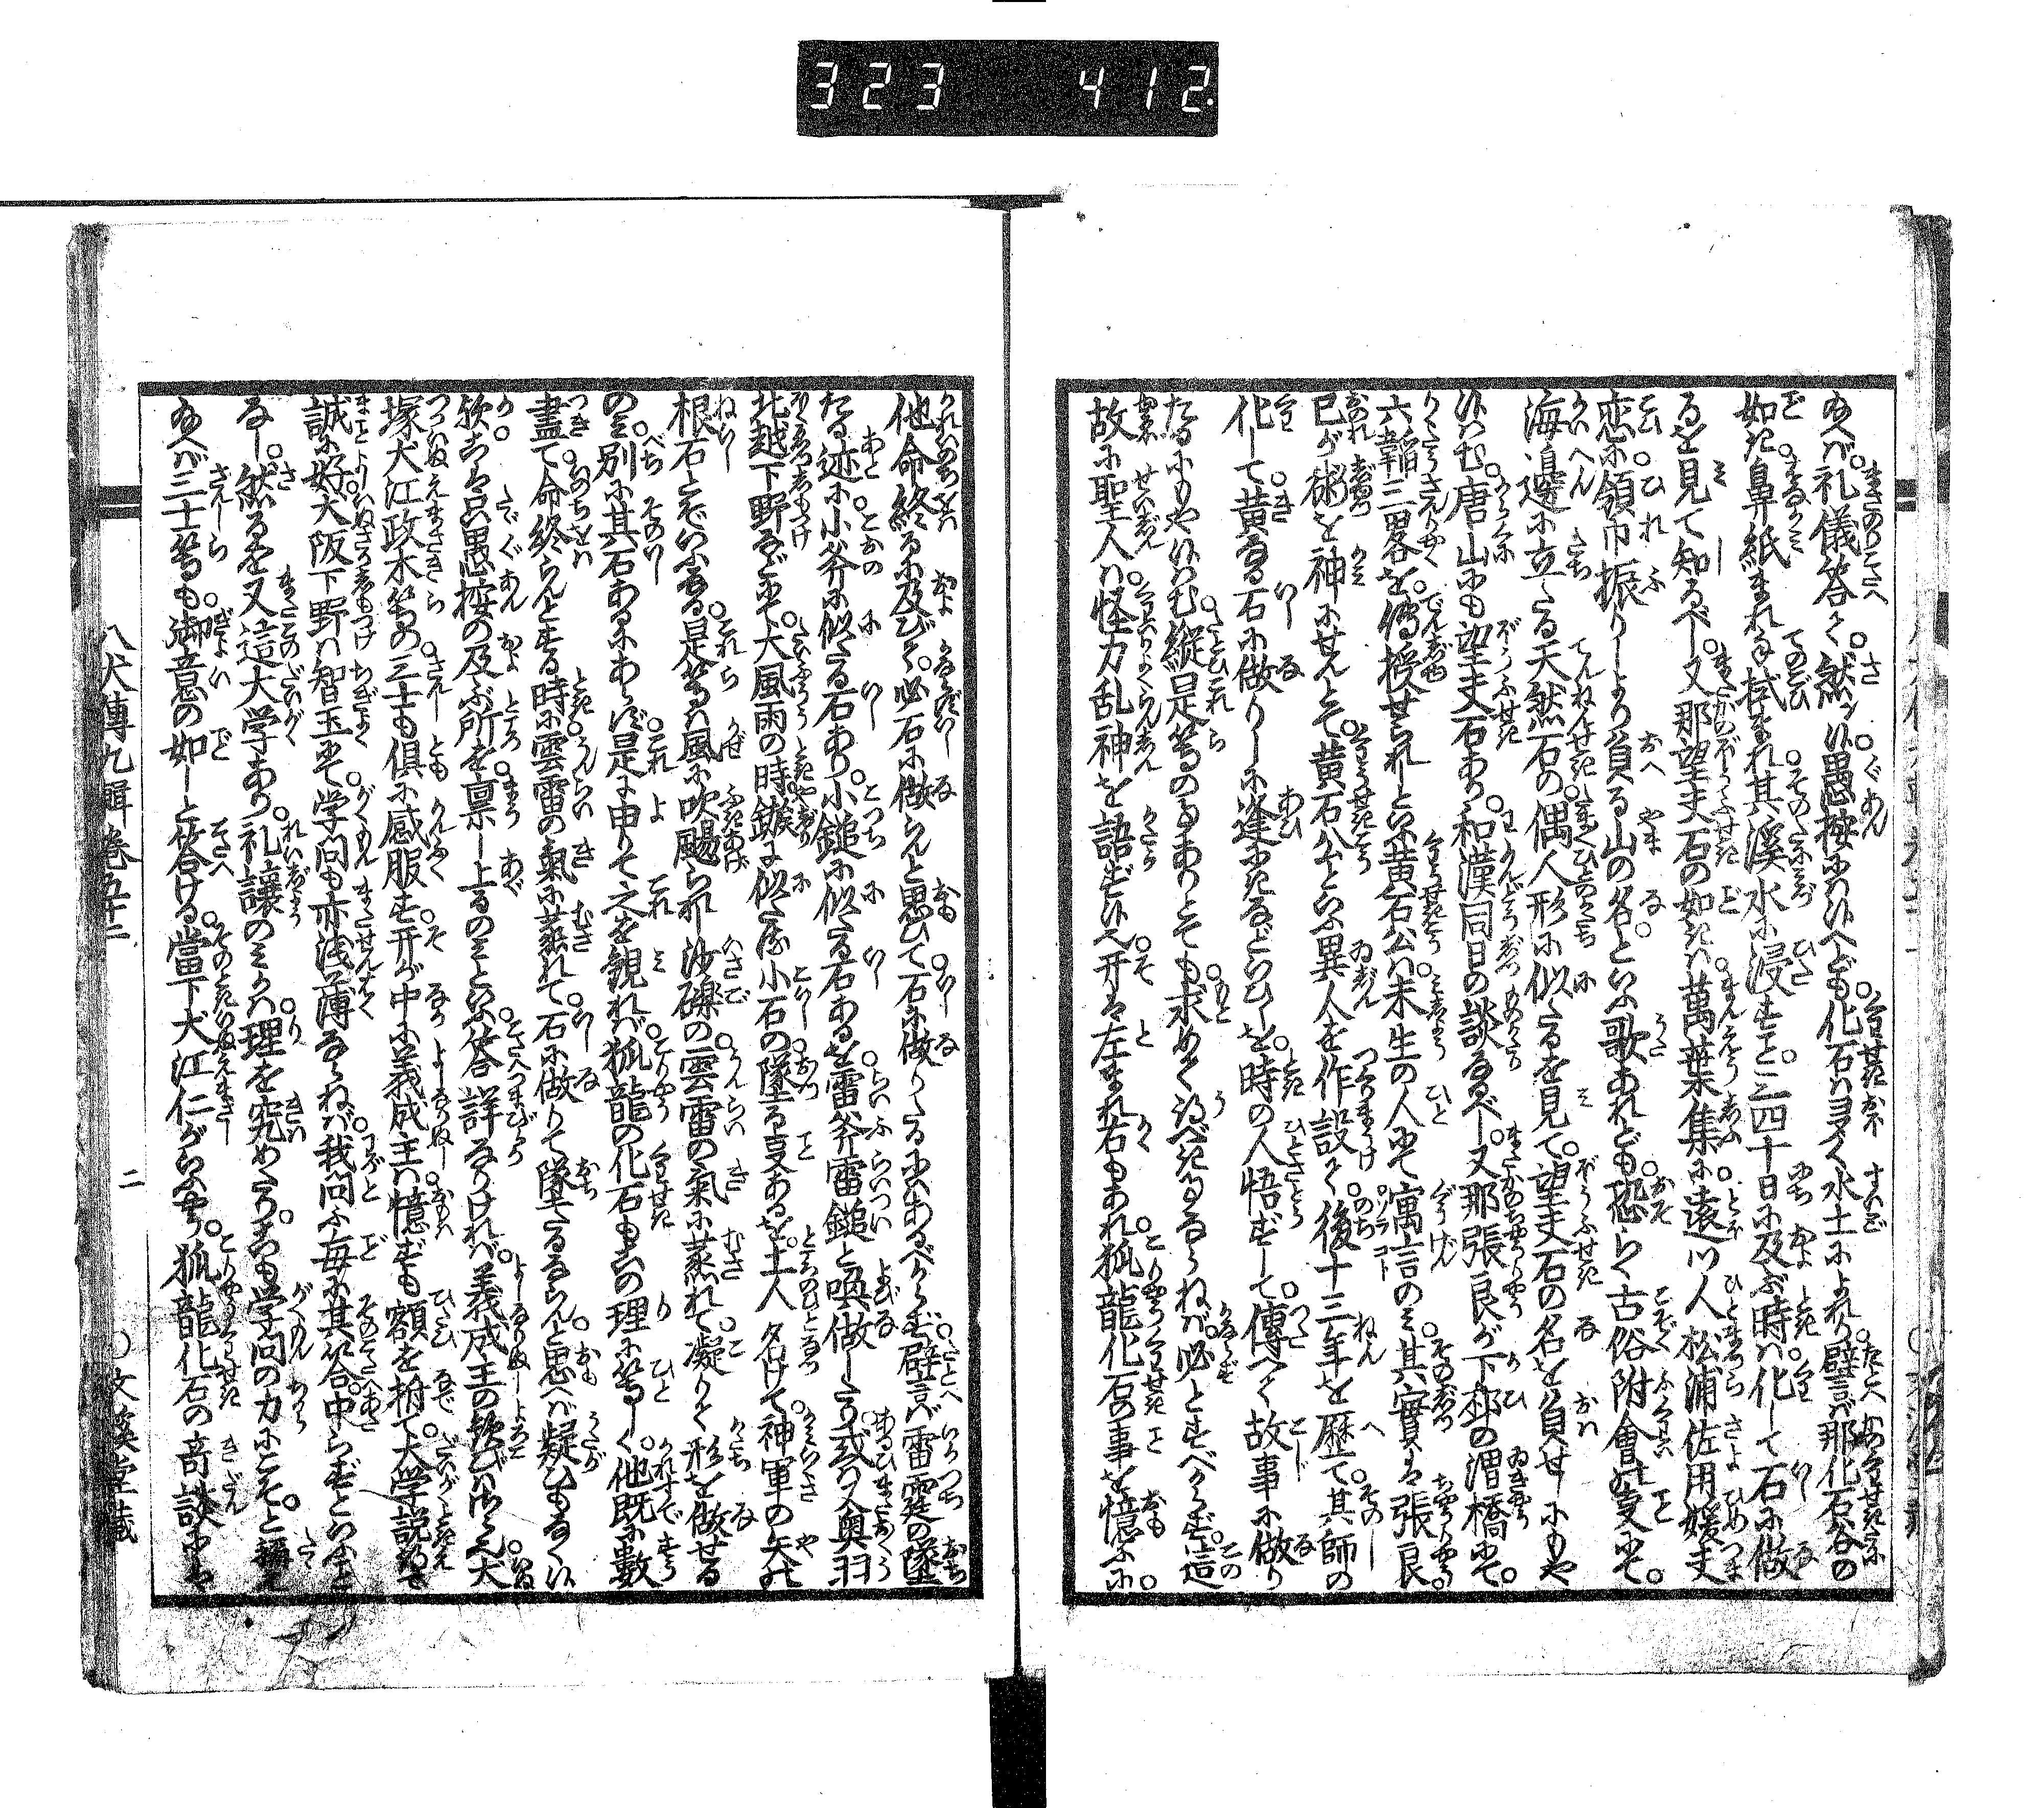 323 412.
ゆへば。礼儀答て。然ン候。愚按にハ候へども。化石ハ多く水土によれり。譬言バ那化石谷の
如き。鼻紙まれ手拭まれ其溪水に浸すこと。三四十日に及ぶ時ハ。化して石に做
るを見て知るべし。又那望夫石の如きハ。萬葉集に。遠つ人松浦佐用媛夫
恋に。領巾振りしより負る山の名。といふ歌あれども。恐らく古俗附會の㕝にて。
海邊に立たる天然石の。偶人形に似たるを見て。望夫石の名を負せしにもや
候はむ。唐山にも望夫石あり。和漢同日の談なるべし。又那張良が下邳の溍橋にて。
六韜三畧を。傳授せられしといふ黄石公ハ。未生の人にて寓言のミ。其實ハ張良。
己が術を神にせんとて。黄石公といふ異人を作設て。後十三年を歴て。其師の
化して。黄なる石に做りしに逢にきなどいひしを。時の人悟ずして。傳へて故事に做り
たるにもや候はむ。縦是等の事ありとても。求めて得べきものならねバ。必とすべからず。這
故に聖人ハ。怪力乱神を語ず候へ。开は左まれ右もあれ。狐龍化石の事を憶ふに。
他命終るに及びて。必石に做らんと思ひて。石に做りたるにハあるべからず。譬言バ雷霆の墜
たる迹に。小斧に似たる石あり。小鎚に似たる石あるを。雷斧雷鎚と喚做したり。或ハ又奥羽
北越下野などにて。大風雨の時。鏃に似たる小石の。墜る㕝あるを。土人名けて。神軍の矢の
根石とぞいふなる。是等ハ風に吹颺られし沙礫の。雲雷の氣に蒸れて。凝りて形を做せる
のミ。別に其石あるにあらず。是に由りて之を観れバ。狐龍の化石もこの理に等しく。他既に數
盡て。命終らんとする時に。雲雷の氣に蒸れて。石に做りて墜たるならんと思へバ。疑ひもなく候
歟。こハ只愚按の及ぶ所を。禀し上るのミといふ。答詳なりけれバ。義成主の歓びハさら也。大
塚犬江政木等の三士も。俱に感服す。开が中に義成主ハ。憶ずも額を拊て。大学説得て
誠に好。犬阪下野ハ智玉にて。学問も亦浅薄ならねバ。我問ふ毎に其答。中らずといふこと
なし。然るを又這大学あり。礼讓のミかハ。理を究めたり。こも学問の力にこそ。と稱て
ゆへバ。三士等も。御意の如しと答ける。當下犬江仁がいふやう。狐龍化石の奇談にハ
八犬傳九輯巻五十二
二
○文溪堂藏